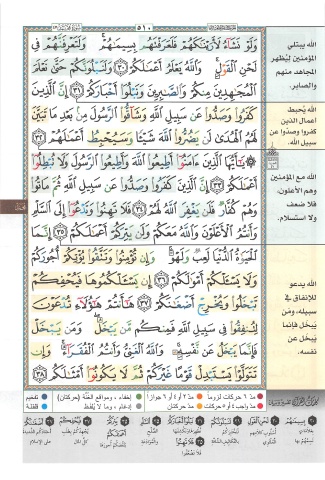 ٥١٠
وَلَوْ نَشَاءُ لَأَرَيْنَاكَهُمْ فَلَعَرَفْتَهُم بِسِيمَاهُمْ وَلَتَعْرِفَنَّهُمْ فِي
لَحْنِ الْقَوْلِ وَاللَّهُ يَعْلَمُ أَعْمَالَكُمْ ٣٠ وَلَنَبْلُوَنَّكُمْ حَتَّى نَعْلَمَ
الْمُجَاهِدِينَ مِنكُمْ وَالصَّابِرِينَ وَنَبْلُوَ أَخْبَارَكُمْ ٣١ إِنَّ الَّذِينَ
كَفَرُوا وَصَدُّوا عَن سَبِيلِ اللَّهِ وَشَاقُّوا الرَّسُولَ مِن بَعْدِ مَا تَبَيَّنَ
لَهُمُ الْهُدَى لَن يَضُرُّوا اللَّهَ شَيْئًا وَسَيُحْبِطُ أَعْمَالَهُمْ ٣٢
يَا أَيُّهَا الَّذِينَ آمَنُوا أَطِيعُوا اللَّهَ وَأَطِيعُوا الرَّسُولَ وَلَا تُبْطِلُوا
أَعْمَالَكُمْ ٣٣ إِنَّ الَّذِينَ كَفَرُوا وَصَدُّوا عَن سَبِيلِ اللَّهِ ثُمَّ مَاتُوا
وَهُمْ كُفَّارٌ فَلَن يَغْفِرَ اللَّهُ لَهُمْ ٣٤ فَلَا تَهِنُوا وَتَدْعُوا إِلَى السَّلْمِ
وَأَنتُمُ الْأَعْلَوْنَ وَاللَّهُ مَعَكُمْ وَلَن يَتِرَكُمْ أَعْمَالَكُمْ ٣٥ إِنَّمَا
الْحَيَاةُ الدُّنْيَا لَعِبٌ وَلَهْوٌ وَإِن تُؤْمِنُوا وَتَتَّقُوا يُؤْتِكُمْ أُجُورَكُمْ
وَلَا يَسْأَلْكُمْ أَمْوَالَكُمْ ٣٦ إِن يَسْأَلْكُمُوهَا فَيُحْفِكُمْ
تَبْخَلُوا وَيُخْرِجْ أَضْغَانَكُمْ ٣٧ هَا أَنتُمْ هَؤُلَاءِ تُدْعَوْنَ
لِتُنفِقُوا فِي سَبِيلِ اللَّهِ فَمِنكُم مَّن يَبْخَلُ وَمَن يَبْخَلْ
فَإِنَّمَا يَبْخَلُ عَن نَّفْسِهِ وَاللَّهُ الْغَنِيُّ وَأَنتُمُ الْفُقَرَاءُ وَإِن
تَتَوَلَّوْا يَسْتَبْدِلْ قَوْمًا غَيْرَكُمْ ثُمَّ لَا يَكُونُوا أَمْثَالَكُم ٣٨
الله يبتلي
المؤمنين ليُظهر
المجاهد منهم
والصابر.
الله يُحبط
أعمال الذين
كفروا وصدُّوا عن
سبيل الله.
الله مع المؤمنين
وهم الأعلون،
فلا ضعف
ولا استسلام.
الله يدعو
للإنفاق في
سبيله، ومَن
يبخل فإنما
يبخل عن
نفسه.
مدّ ٦ حركات لزوماً
مدّ ٢ أو ٤ أو ٦ جوازاً
إخفاء، ومواقع الغُنَّة (حركتان)
تفخيم
مدّ حركتان
إدغام، وما لا يُلفظ
قلقلة